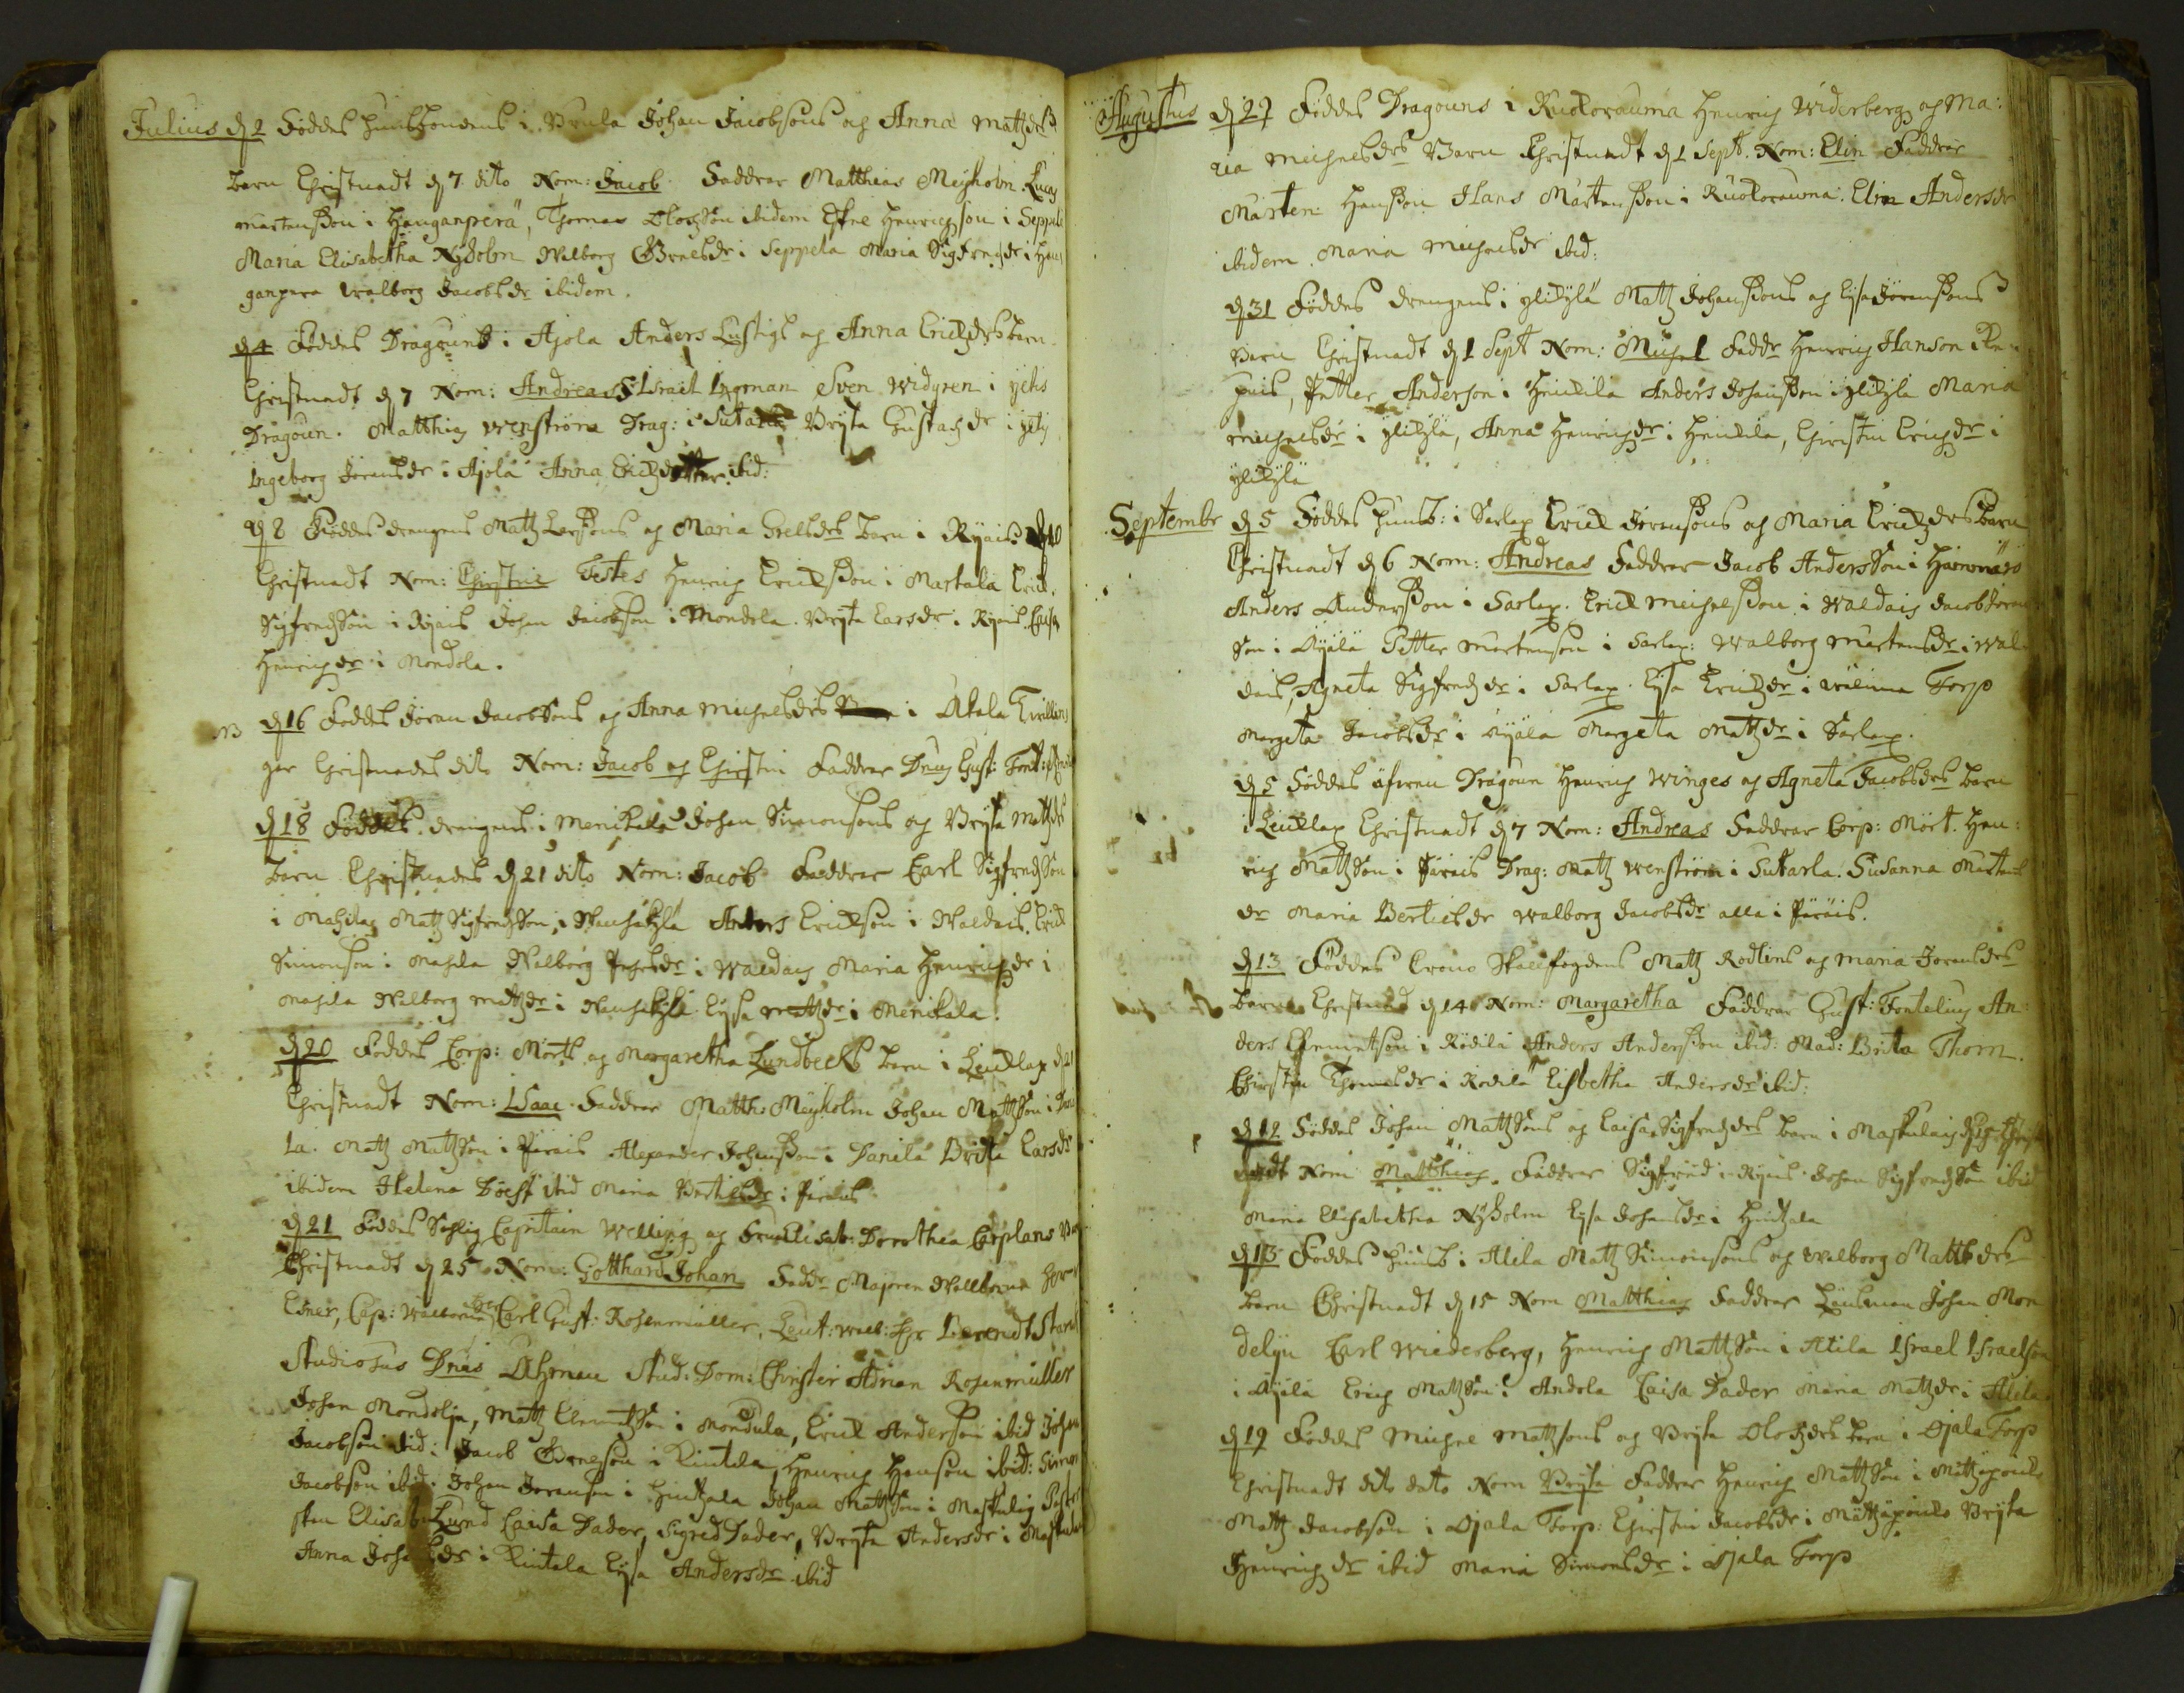 Julius d 2 Föddes hustbondens i Vrula Johan Jacobsons og Anna Mattzdrs
barn Christnadt d 7 dito Nom: Jacob. Faddrar Matthias Meyholm
Martensson i Hauganperä, Thomas Olofsson ibidem Henrichson i Seppälä
Maria Elisabetha Nyholm Walborg i Seppela Maria Sigfredzdr i
ganpera Walborg Jacobsdr ibidem.
d 4 Föddes Dragouns i Ajola Anders Lustigs og Anna Erickzdrs barn
Christnadt d 7 Nom: Andreas Israel Ingman Sven Widgren i
Dragoun. Matthias Wenström Drag: i Brijta Gustafzdr i
Ingeborg Joransdr i Ajola Anna Erickzdotter ibid:
d 8 Föddes drengens Mattz Larssons og Maria Grelsdrs barn i Ryais
Christnadt Nom: Christin Testes Henrich Ericksson i Martala Erick
Sigfredsson i Ryais Johan Jacobson i Mondola. Brijta Larsdr i Ryais
Henrichzdr i Mondola.
NB d 16 Föddes Jöran Jacobsons og Anna Michelsdrs i Ukala Twillin
gar Christnades dito Nom: Jacob og Christin Faddrar Gust: Font:
d 18 Föddes drengens i Menikala Johan Simonsons og Brijta Mattzdrs
barn Christnades d 21 dito Nom: Jacob Faddrar Carl Sigfredsson
i Mahila Mattz Sigfredsson i Anders Erickson i Waldais. Erick
Simonson i Mahila Walborg i Waldais Maria Henrichzdr i
Mahila Walborg Mattzdr i Lijsa Mattzdr i Menikala.
d 20 Föddes Corp: Mörts og Margaretha Lundbecks barn i Leucklax
Christnadt Nom: Isaac. Faddrar Matth: Meyholm Johan Mattzson i
la. Mattz Mattzson i Päräis Alexander Johansson i Danila Brita Larsdr
ibidem Helena ibid Maria Bertilsdr i Päräis
d 21 Föddes Capitain Welling og Fru Elisab: Dorothea Carplans
Christnadt d 25 Nom: Gotthard Johan Faddr Majoren Wälborne
Cap: Carl Gust: Rosenmüller, Leut: Berendt
Studiosus Stud: Dom: Christer Adrian Rosenmüller
Johan Mondelijn, Mattz i Mondula, Erick Anderson ibid Johan
Jacobson ibid: Jacob i Rintala, Henrich Hanson ibid: Simon
Jacobson ibid: Johan Joranson i Hintzala Johan Mattzson i Maskulais
Elisab: Lund Caisa Dader, Sigred Dader, Brijta Andersdr i
Anna i Rintala Lijsa Andersdr ibid
Augustus d 27 Föddes Dragouns i Ruokorauma Henrich Widerberg og Ma:
ria Michelsdrs Barn Christnadt d 1 Sept. Nom: Elin Faddrar
Mårten Hansson Hans Mårtensson i Ruokorauma. Elin Andersdr
ibidem. Maria Michelsdr ibid:
d 31 Föddes drengens i ylikylä Mattz Johanssons og Lijsa Joranssons
Barn Christnadt d 1 Sept Nom: Michel Faddr Henrich Hanson i
Petter Anderson i Heickila Anders Johansson i ylikylä Maria
Michelsdr i ylikylä, Anna Henrichzdr i Heickila, Christin Erichzdr i
ylikylä
Septembr d 5 Föddes husb: i Sarlax Erick Joranssons og Maria Erickzdrs barn
Christnadt d 6 Nom: Andreas Faddrar Jacob Andersson i
Anders Andersson i Sarlax. Erick Michelsson i Waldais Jacob
son i Äyälä Petter Martenson i Sarlax: Walborg Martensdr i Wal
dais, Agneta Sigfredzdr i Sarlax. Lijsa Erickzdr i Torp
Margeta Jacobsdr i Äyälä Margeta Mattzdr i Sarlax.
d 5 Föddes Dragoun Henrich Winges og Agneta Jacobsdrs barn
i Leucklax Christnadt d 7 Nom: Andreas Faddrar Corp: Mört. Hen:
rich Mattzson i Päräis Drag: Mattz Wenström i Sutarla. Susanna
dr Maria Bertilsdr Walborg Jacobsdr alla i Päräis.
d 13 Föddes Crono Skallfogdens Mattz Rodlins og Maria Joransdrs
Barn Christnad d 14 Nom: Margaretha Faddrar Gust: Fontelius An
ders Clemetson i Rödilä Anders Andersson ibid: Mad: Brita Thorn.
Christin i Rödilä Lisbetha Andersdr ibid:
d 12 Föddes Johan Mattzsons og Caisa Sigfredzdrs barn i Maskulais
Nom Matthias. Faddrar Sigfrid i Ryais Johan Sigfredsson ibid
Maria Elisabetha Nyholm Lijsa Johansdr i Hintzala
d 13 Föddes husb: i Alila Mattz Simonsons og Walborg Mattsdrs
barn Christnadt d 15 Nom Matthias Faddrar Länsman Johan Mon
delijn Carl Wiederberg, Henrich Mattzson i Alila Israel Israelson
i Äyälä Erich Mattzson i Andola Caisa Dader Maria Mattzdr i Alila
d 19 Föddes Michel Mattzsons og Brijta Olofzdrs barn i Ojala Torp
Christnadt dito dato Nom Brijta Faddrar Henrich Mattzson i
Mattz Jacobson i Ojala Torp: Christin Jacobsdr i Brijta
Henrichzdr ibid Maria Simonsdr i Ojala Torp